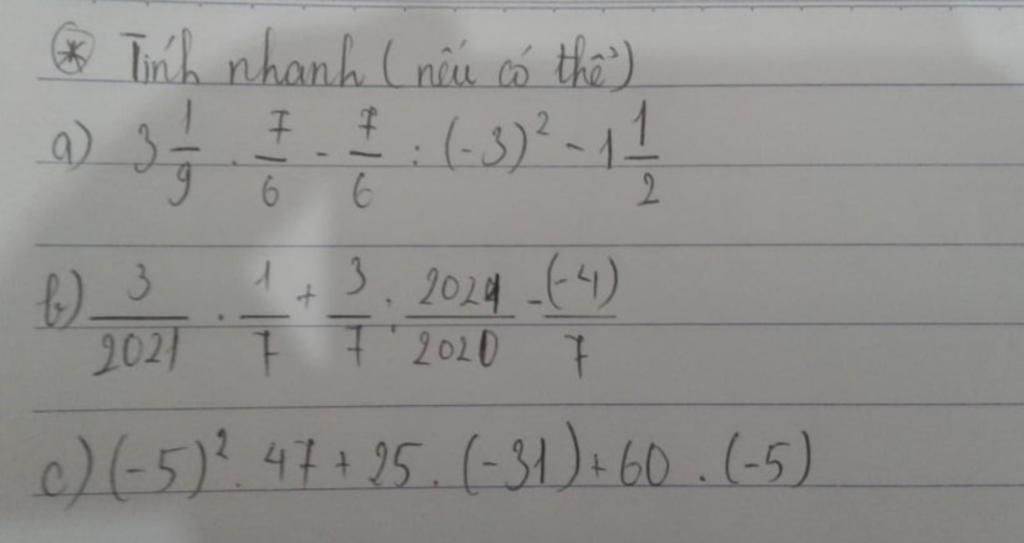 * Tính nhanh (nếu có thể)
a) 3 1/9 . 7/6 - 7/6 : (-3)² - 1 1/2
b) 3/2021 . 1/7 + 3/7 : 2021/2020 - (-4)/7
c) (-5)² . 47 + 25 . (-31) + 60 . (-5)